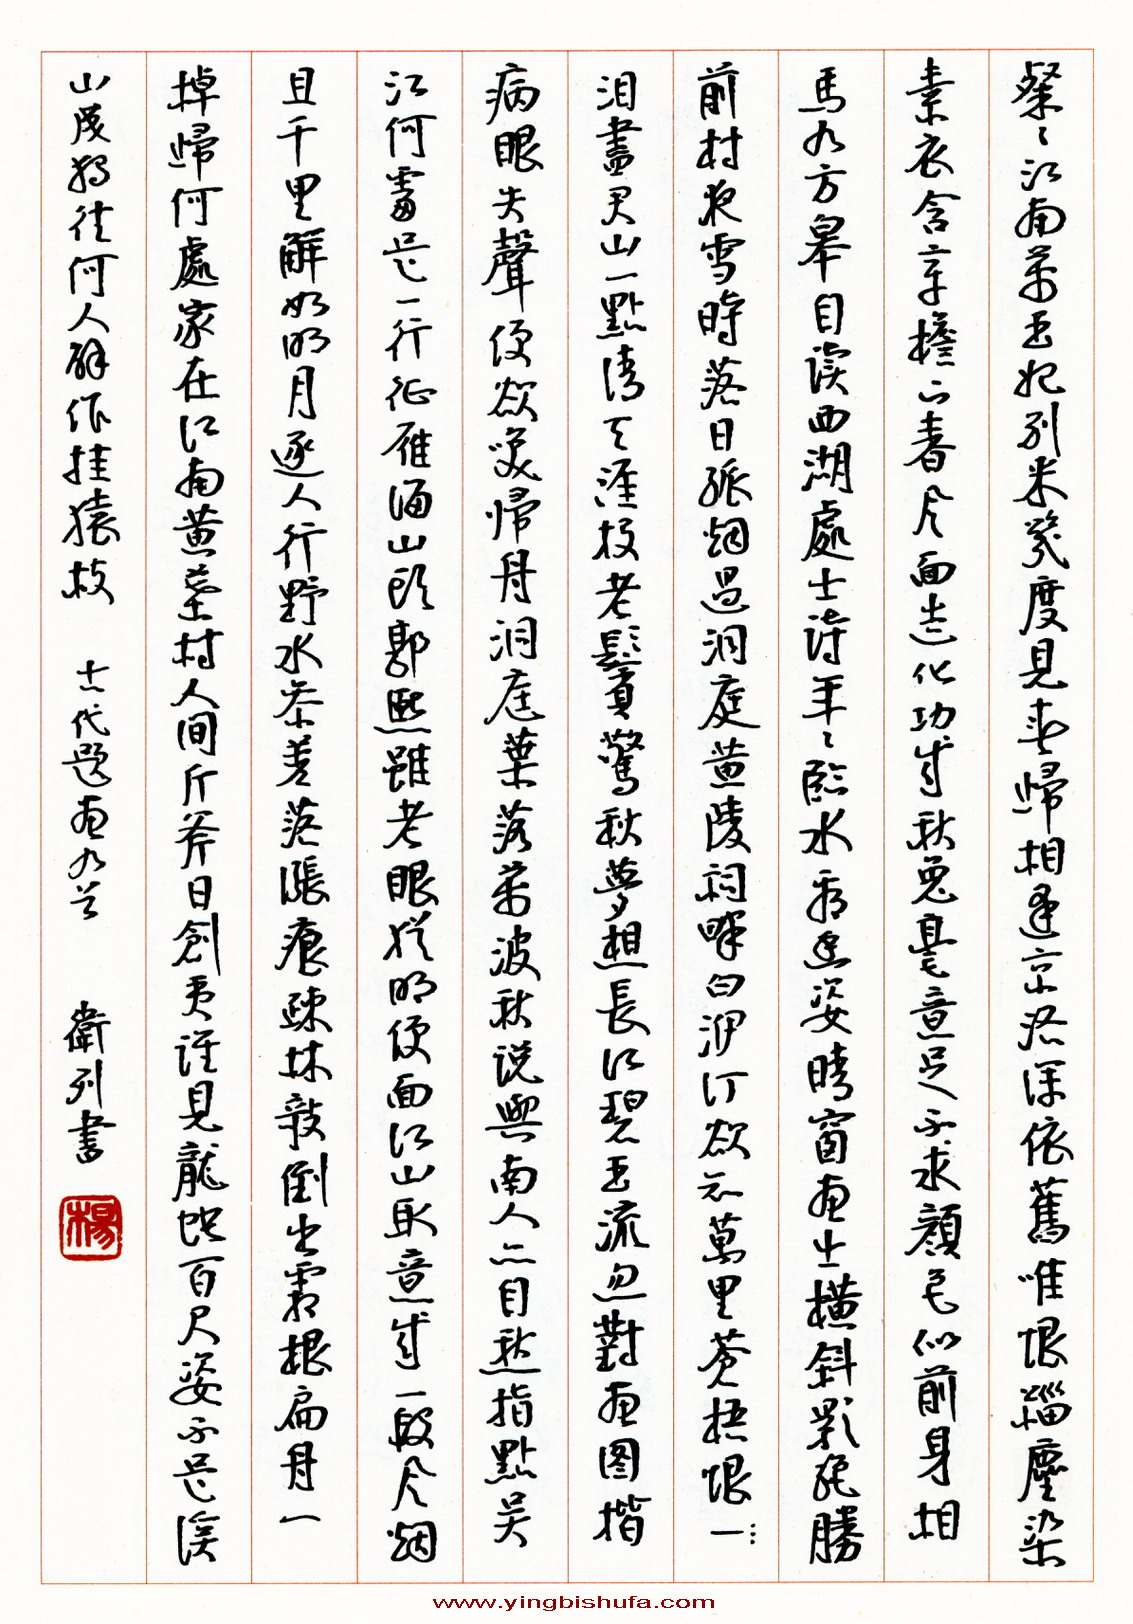 粲〻江南萬玉妃別來幾度見春歸相逢京洛渾依舊唯恨緇塵染
素衣含章檐下春風面造化功成秋兔毫意足不求顏色似前身相
馬九方皋自讀西湖處士詩年〻臨水看幽姿晴窗畫出橫斜影絕勝
前村夜雪時落日孤烟過洞庭黃陵祠畔白蘋汀欲知萬里蒼梧恨一
泪盡君山一點清天涯投老鬢驚秋夢想長江碧玉流忽對畫图揩
病眼失聲便欲喚歸舟洞庭葉落萬波秋説與南人亦自愁指點吳
江何處是一行征雁海山頭郭熙雖老眼猶明便面江山取意成一段風烟
且千里解如明月逐人行野水參差落漲痕疎林攲倒出霜根扁舟一
掉歸何處家在江南黃葉村人間斤斧日創夷誰見龍蛇百尺姿不是溪
山成獨往何人解作挂猿枝 古代題畫九首 衛列書
楊
www.yingbishufa.com